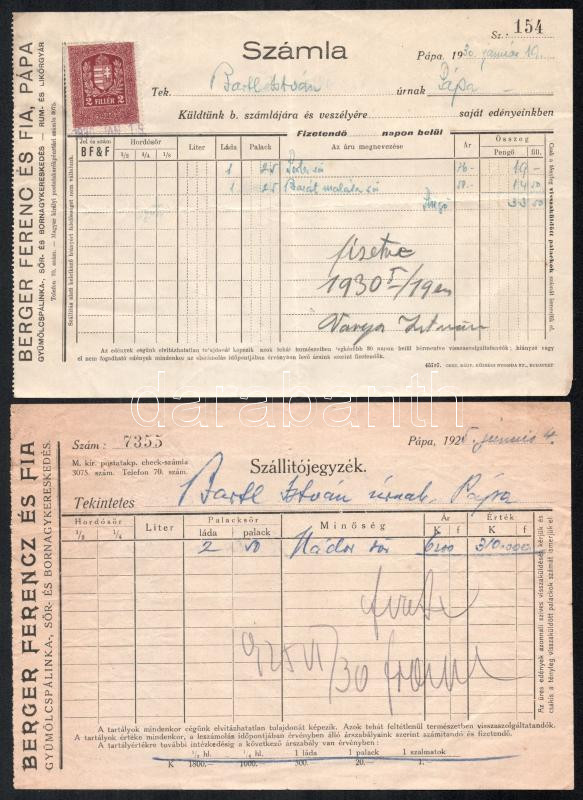 Sz.: 154
Számla
Pápa, 1930. január 19.
2 FILLÉR 2
Tek. Bartl István úrnak Pápa
Küldtünk b. számlájára és veszélyére saját edényeinkben
Fizetendő napon belül
Jel és szám Hordósör Liter Láda Palack Az áru megnevezése Ár Összeg
BF&F 1/2 1/4 1/8 Pengő fill.
1 25
1 25 Barát maláta sör
Pengő 33 50
fizetve
1930 I/19én
Varga István
Az edények cégünk elvitázhatatlan tulajdonát képezik azok tehát természetben legkésőbb 30 napon belül bérmentve visszaszolgáltatandók; hiányzó vagy
el nem fogadható edények mindenkor az elszámolás időpontjában érvényben levő áraink szerint fizetendők.
BERGER FERENC ÉS FIA, PÁPA
GYÜMÖLCSPÁLINKA-, SÖR- ÉS BORNAGYKERESKEDÉS — RUM- ÉS LIKŐRGYÁR
Telefon 70. szám. — Magyar királyi postatakarékpénztári számla 3075.
Csak a tényleg visszaküldött palackok számát ismerjük el.
darabanth
Szám: 7355
Pápa, 1925. junius 4.
M. kir. postatakp. check-számla
3075. szám. Telefon 70. szám.
Szállitójegyzék.
Tekintetes Bartl István úrnak Pápa
Hordósör Liter Palacksör Minőség Ár Érték
1/2 1/4 láda palack K f K f
2 50 Nádor sör 6200 310.000
925 VI/30
A tartályok mindenkor cégünk elvitázhatatlan tulajdonát képezik. Azok tehát feltétlenül természetben visszaszolgáltatandók.
A tartályok értéke mindenkor, a leszámolás időpontjában érvényben álló árszabályaink szerint számítandó és fizetendő.
A tartályértékre további intézkedésig a következő árszabály van érvényben:
1/2 hl. 1/4 hl. 1 láda 1 palack 1 szalmatok
K 1800.— 1000.— 300.— 20.— 1.—
BERGER FERENCZ ÉS FIA
GYÜMÖLCSPÁLINKA-, SÖR- ÉS BORNAGYKERESKEDÉS.
Az üres edények azonnali szives visszaküldését kérjük és
csakis a tényleg visszaküldött palackok számát ismerjük el